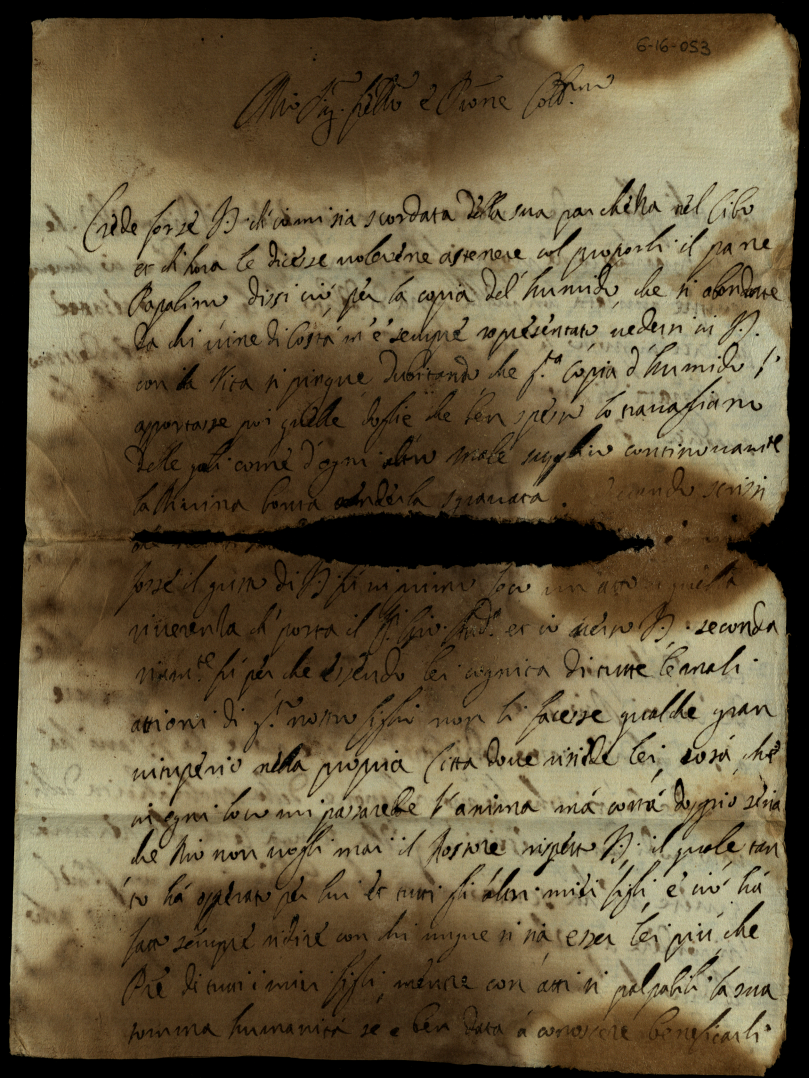 6-16-053
Mio Sig. fratello e Prone Coll.mo
Crede forse V.S. ch'io mi sia scordata della sua parchetta nel Cibo
et ch'hora le dicesse volersene astenere col proporli il pane
Papalino dissi ciò per la copia del humido, che si abondate
da chi viene di Costà m'è sempre representato vedersi in V.S.
con la Vita si pingue dubitando che s.ta Copia d'humido
apportasse poi quelle doglie che ben spesso lo travagliano
delle quali come d'ogni altro male supplico continovam.te
la Divina bontà sgravata. secondo scrissi
forse il gusto di V.S. si in primo loco un atto quella
riverenza ch' porta il et io verso V.S. seconda
riam.te si per che essendo lei cognita di tutte le mali
attioni di s.to nostro figlio non li facesse qualche gran
vituperio nella propria Citta dove risiede lei, cosa che
in ogni loco mi passarebe l'anima ma costà doppio seria
che Dio non vogli mai il dolore rispetto V.S. il quale tan
to ha operato per lui et tutti gli altri miei figli e ciò ha
fatto sempre ridire con chi unque si sia esser lei più che
Pre di tutti i miei figli, mentre con atti si palpabili la sua
somma humanità se e ben data a conoscere beneficarli